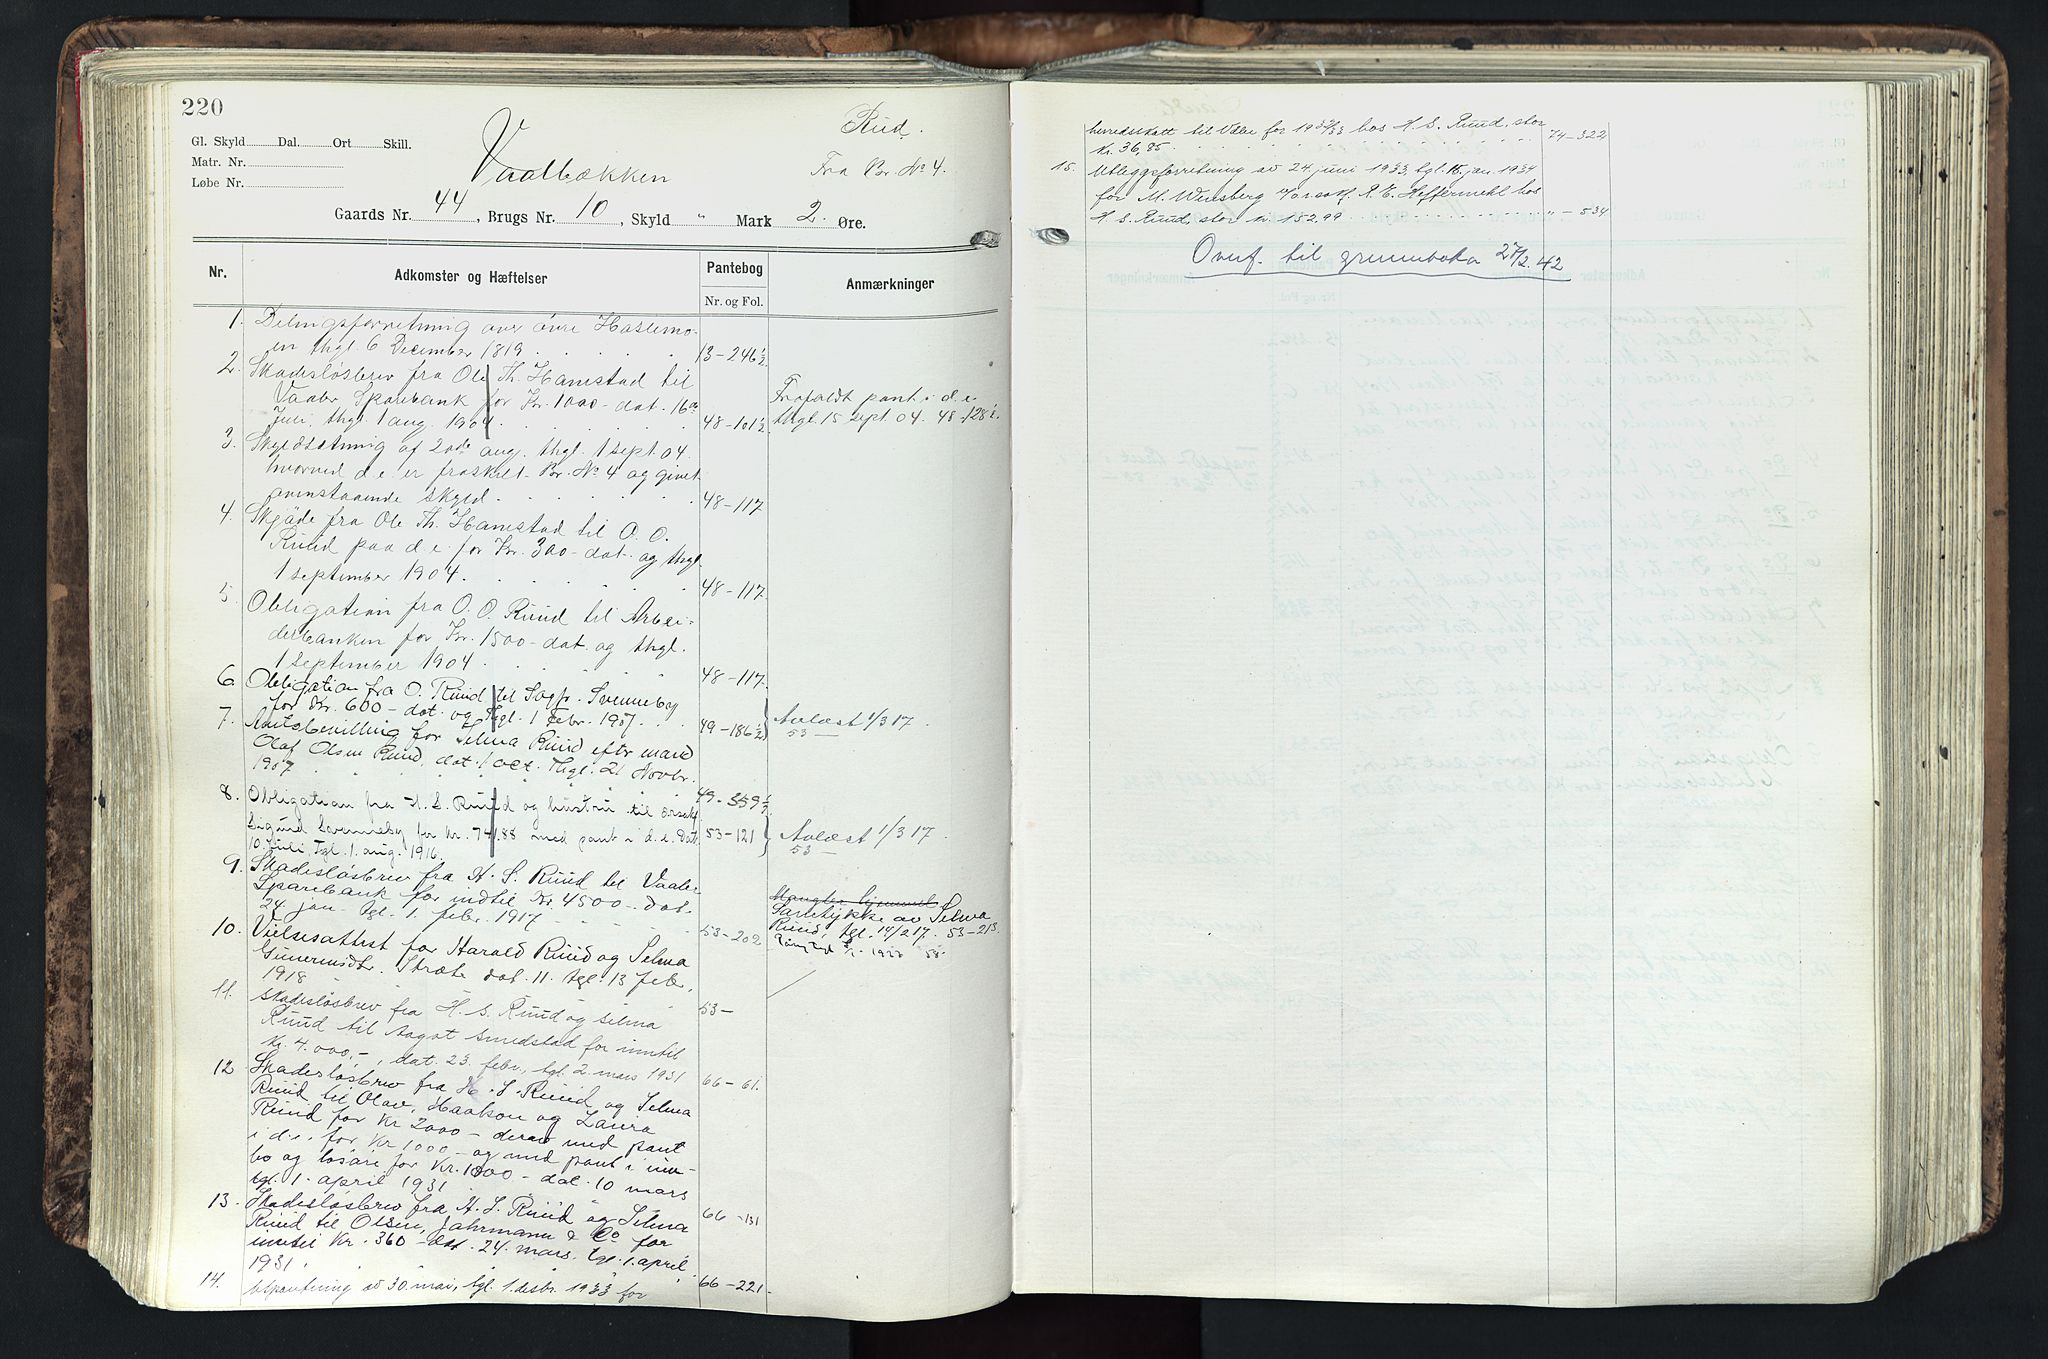 220
Gl. Skyld Dal. Ort Skill.
Matr. Nr.
Løbe Nr.
Vaalbækken
Rud.
Fra Br. No 4.
Gaards Nr. 44, Brugs Nr. 10, Skyld " Mark 2 Øre.
Nr. Adkomster og Hæftelser Pantebog Anmærkninger
Nr. og Fol.
1. Delingsforretning over övre Haslemo-
en thgl. 6 December 1819 . . . 13-246½
2. Skadesløsbrev fra Ole Th. Hamstad til
Vaaler Sparebank for Kr. 1000- dat. 16de
Juli, thgl. 1 aug. 1904 . . 48-101½
Frafaldt pant i d.e.
thgl. 15 sept. 04. 48-128½.
3. Skyldsetning af 20de aug. thgl. 1 sept. 04.
hvorved d.e. er fraskilt Br. No 4 og givet
ovenstaaende skyld. . . . 48-117
4. Skjöde fra Ole Th. Hamstad til O. O.
Ruud paa d.e. for Kr. 300- dat. og thgl.
1 september 1904. . . . 48-117
5. Obligation fra O. O. Ruud til Arbei-
derbanken for Kr. 1500- dat. og thgl.
1 september 1904 . . . 48-117.
6. Obligation fra O. Ruud til Sogpr. Svenneby
for Kr. 600- dat. og thgl. 1 Febr. 1907. . . 49-186½
Avlæst 1/3 17.
53 —
7. Amtsbevilling for Selma Ruud efter mand
Olaf Olsen Ruud, dat. 1 oct. Thgl. 21 Novbr.
1907 . . . 49-359½
8. Obligation fra H. S. Ruud og hustru til
Sigurd Svenneby for Kr. 741.88 med pant i d.e. Dat. 53-121
10. Juli, Tgl. 1. aug. 1916.
Avlæst 1/3 17.
53 —
9. Skadesløsbrev fra H. S. Ruud til Vaaler
Sparebank for indtil Kr. 4500- dat.
24. jan. tgl. 1. febr. 1917 . . 53-202
Mangler hjemmel.
Samtykke av Selma
Ruud, tgl. 14/2 17. 53-213.
10. Vielsesattest for Harald Ruud og Selma
Strøte dat. 11. tgl. 13 febr.
1918 . . . 53-
11. Skadesløsbrev fra H. S. Ruud og Selma
Ruud til Aagot Smedstad for inntil
Kr. 4.000,-, dat. 23. febr., tgl. 2. mars 1931 66-61.
12. Skadesløsbrev fra H. S. Ruud og Selma
Ruud til Olav, Haakon og Laura
Ruud for Kr 2000- derav med pant
i d.e. for Kr 1000- og med pant i inn-
bo og løsøre for Kr. 1000- dat. 10 mars
tgl. 1. april 1931 . . 66-131
13. Skadesløsbrev fra H. S. Ruud og Selma
Ruud til Olsen, Jahrmann & Co for
inntil Kr. 360- dat. 24. mars. tgl. 1. april
1931. . . . 66-221.
14. Utpantning av 30. mai, tgl. 1. desbr. 1933 for
herredsskatt til Våler for 1932/33 hos H. S. Ruud, stor
kr. 36,85 . . . 74-322
15. Utleggsforretning av 24. juni 1933, tgl. 15. jan. 1934
for M. Wensberg v/o.r.sakf. R. E. Heftermehl hos
H. S. Ruud, stor kr. 152.99 . . . "-534
Overf. til grunnboka 27/2. 42